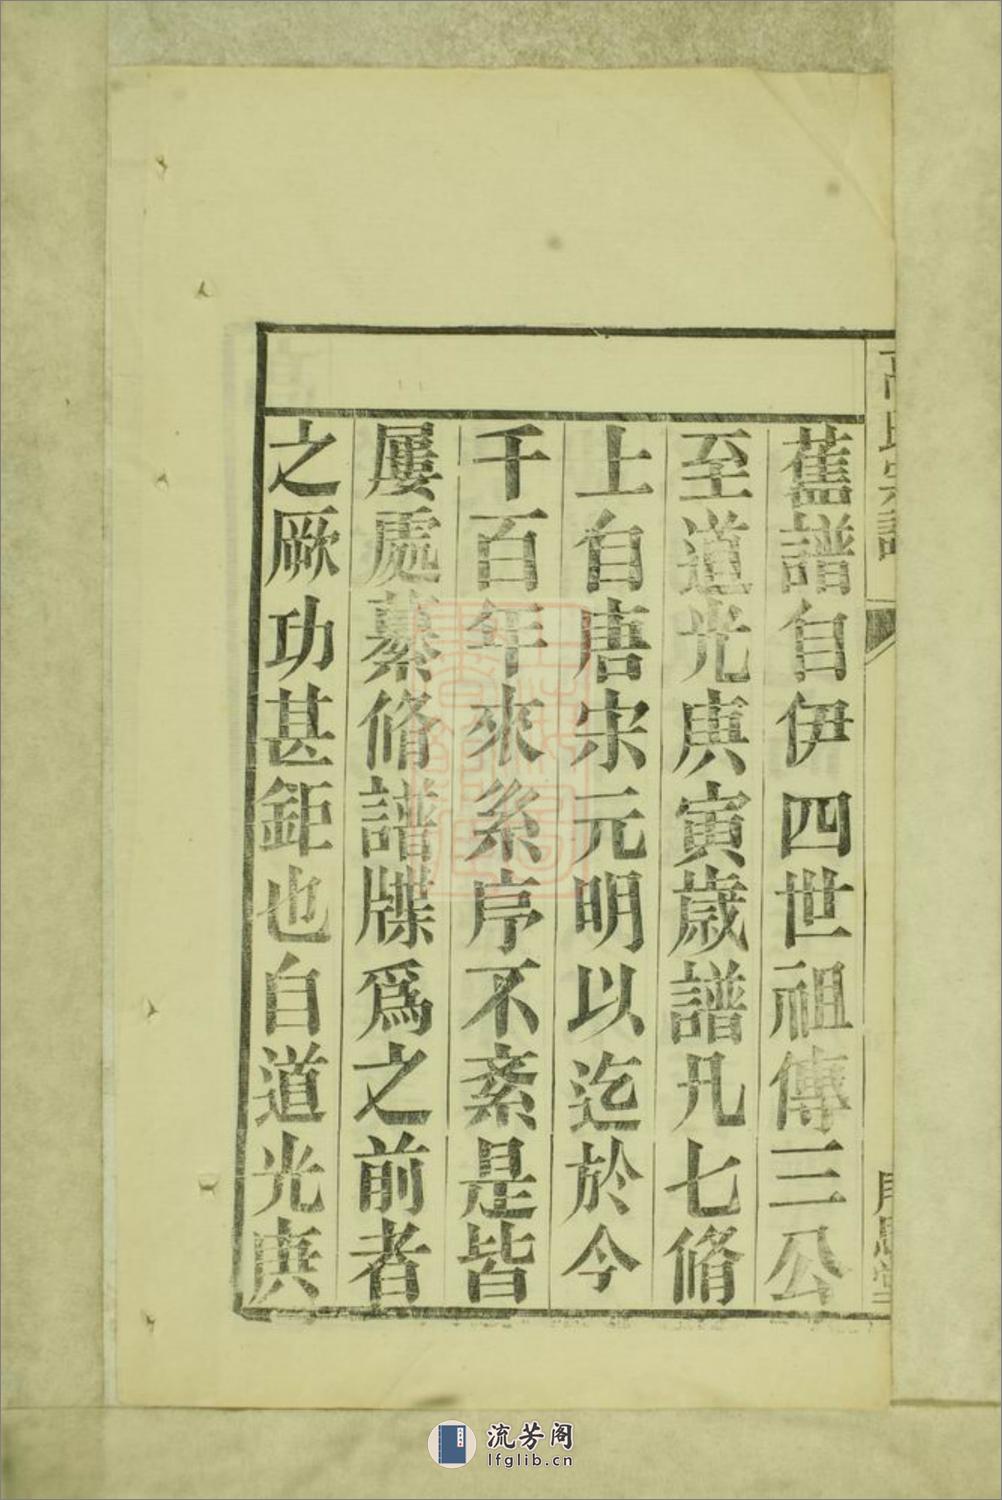 舊譜自伊四世祖傳三公
至道光庚寅歲譜凡七脩
上自唐宋元明以迄於今
千百年來系序不紊是皆
屢處纂脩譜牒爲之前者
之厥功甚鉅也自道光庚
流芳阁
lfglib.cn